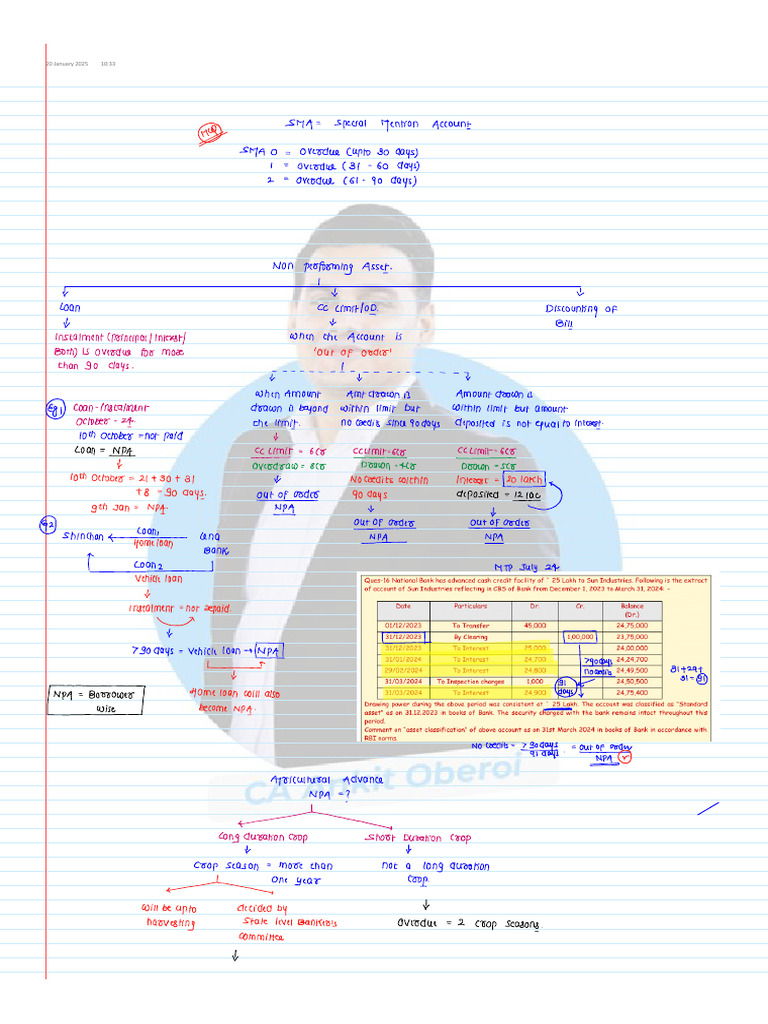 20 January 2025 10:33
MCQ
SMA = Special Mention Account
SMA 0 = Overdue (upto 30 days)
1 = Overdue (31 - 60 days)
2 = Overdue (61 - 90 days)
Non Performing Asset.
Loan
CC Limit/OD.
Discounting of
Bill
Instalment (Principal/Interest/
Both) is overdue for more
than 90 days.
When the Account is
'Out of order'
When Amount
drawn is beyond
the limit.
Amt drawn is
within limit but
no credits since 90 days
Amount drawn is
within limit but amount
deposited is not equal to interest.
Eg1
Loan - Instalment
October - 24
10th October = not paid
Loan = NPA
10th October = 21 + 30 + 31
+ 8 = 90 days.
9th Jan = NPA
CC Limit = 6cr
Overdraw = 8cr
Out of order
NPA
CC Limit = 6cr
Drawn = 4cr
No Credits within
90 days
Out of order
NPA
CC Limit = 6cr
Drawn = 5cr
Interest = 20 lakh
deposited = 12 lac
Out of order
NPA
Eg2
Shinchan
Loan1
Home loan
Bank
Loan2
Vehicle loan
Instalment = not repaid
>90 days = Vehicle loan → NPA
Home loan will also
become NPA.
NPA = Borrower
wise
MTP July 24
Ques-16 National Bank has advanced cash credit facility of ` 25 Lakh to Sun Industries. Following is the extract
of account of Sun Industries reflecting in CBS of Bank from December 1, 2023 to March 31, 2024: -
Date Particulars Dr. Cr. Balance
(Dr.)
01/12/2023 To Transfer 45,000 24,75,000
31/12/2023 By Clearing 1,00,000 23,75,000
31/12/2023 To Interest 25,000 24,00,000
31/01/2024 To Interest 24,700 24,24,700
29/02/2024 To Interest 24,800 24,49,500
31/03/2024 To Inspection charges 1,000 24,50,500
31/03/2024 To Interest 24,900 24,75,400
>90 days
no credits
91
days
31 + 29 +
31 = 91
Drawing power during the above period was consistent at ` 25 Lakh. The account was classified as "Standard
asset" as on 31.12.2023 in books of Bank. The security charged with the bank remains intact throughout this
period.
Comment on "asset classification" of above account as on 31st March 2024 in books of Bank in accordance with
RBI norms.
No Credits = >90 days = Out of order
91 days NPA
CA Ankit Oberoi
Agricultural Advance
NPA = ?
Long Duration Crop
Short Duration Crop
Crop Season = more than
One year
Not a long duration
Crop
will be upto
harvesting
decided by
State level Bankers
committee
Overdue = 2 crop seasons.